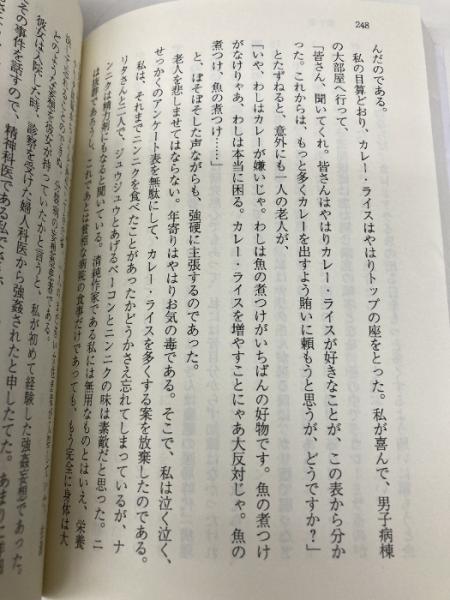 248
んだのである。
私の目算どおり、カレー・ライスはやはりトップの座をとった。私が喜んで、男子病棟
の大部屋へ行って、
「皆さん、聞いてくれ。皆さんはやはりカレー・ライスが好きなことが、この表から分か
った。これからは、もっと多くカレーを出すよう賄いに頼もうと思うが、どうですか?」
とたずねると、意外にも一人の老人が、
「いや、わしはカレーが嫌いじゃ。わしは魚の煮つけがいちばんの好物です。魚の煮つけ
がなけりゃあ、わしは本当に困る。カレー・ライスを増やすことにゃあ大反対じゃ。魚の
煮つけ、魚の煮つけ……」
と、ぼそぼそした声ながらも、強硬に主張するのであった。
老人を悲しませてはならない。年寄りはやはりお気の毒である。そこで、私は泣く泣く、
せっかくのアンケート表を無駄にして、カレー・ライスを多くする案を放棄したのである。
私は、それまでニンニクを食べたことがあったかどうかさえ忘れてしまっているが、ナ
リタさんと二人で、ジュウジュウとあげるベーコンとニンニクの味は素敵だと思った。ニ
ンニクは精力剤にもなると聞いている。清純作家である私には無用なものとはいえ、栄養
は抜群であろうし、これであとは貧相な病院の食事だけであっても、もう完全に身体は大
どのような妄想を彼女が持っていたかと言うと、私が初めて経験した強姦妄想であった。
彼女は入院した時、診察を受けた婦人科医から強姦されたと申したてた。あまりに
その事件を話すので、精神科医である私